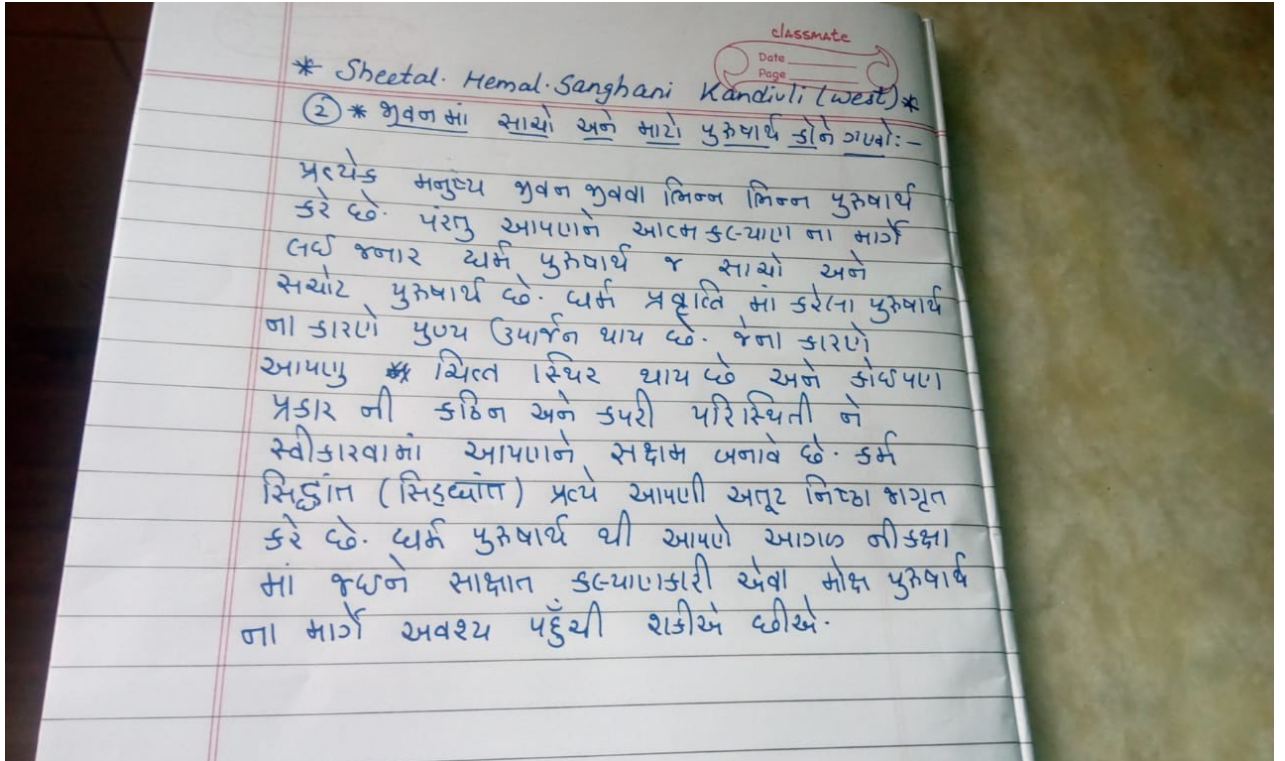 classmate
Date
Page
* Sheetal. Hemal. Sanghani Kandivli (west) *
(2) * જીવનમાં સાચો અને માટો પુરુષાર્થ કોને ગણવો:-
પ્રત્યેક મનુષ્ય જીવન જીવવા ભિન્ન ભિન્ન પુરુષાર્થ
કરે છે. પંરતુ આપણને આત્મકલ્યાણ ના માર્ગે
લઈ જનાર ધર્મ પુરુષાર્થ જ સાચો અને
સચોટ પુરુષાર્થ છે. ધર્મ પ્રવૃત્તિ માં કરેલા પુરુષાર્થ
ના કારણે પુણ્ય ઉપાર્જન થાય છે. જેના કારણે
આપણુ ચિત્ત સ્થિર થાય છે અને કોઈપણ
પ્રકાર ની કઠિન અને કપરી પરિસ્થિતી ને
સ્વીકારવામાં આપણને સક્ષમ બનાવે છે. કર્મ
સિદ્ધાંત (સિદ્ધાંત) પ્રત્યે આપણી અતૂટ નિષ્ઠા જાગૃત
કરે છે. ધર્મ પુરુષાર્થ થી આપણે આગળ ની કક્ષા
માં જઈને સાક્ષાત કલ્યાણકારી એવા મોક્ષ પુરુષાર્થ
ના માર્ગે અવશ્ય પહુઁચી શકીએ છીએ.